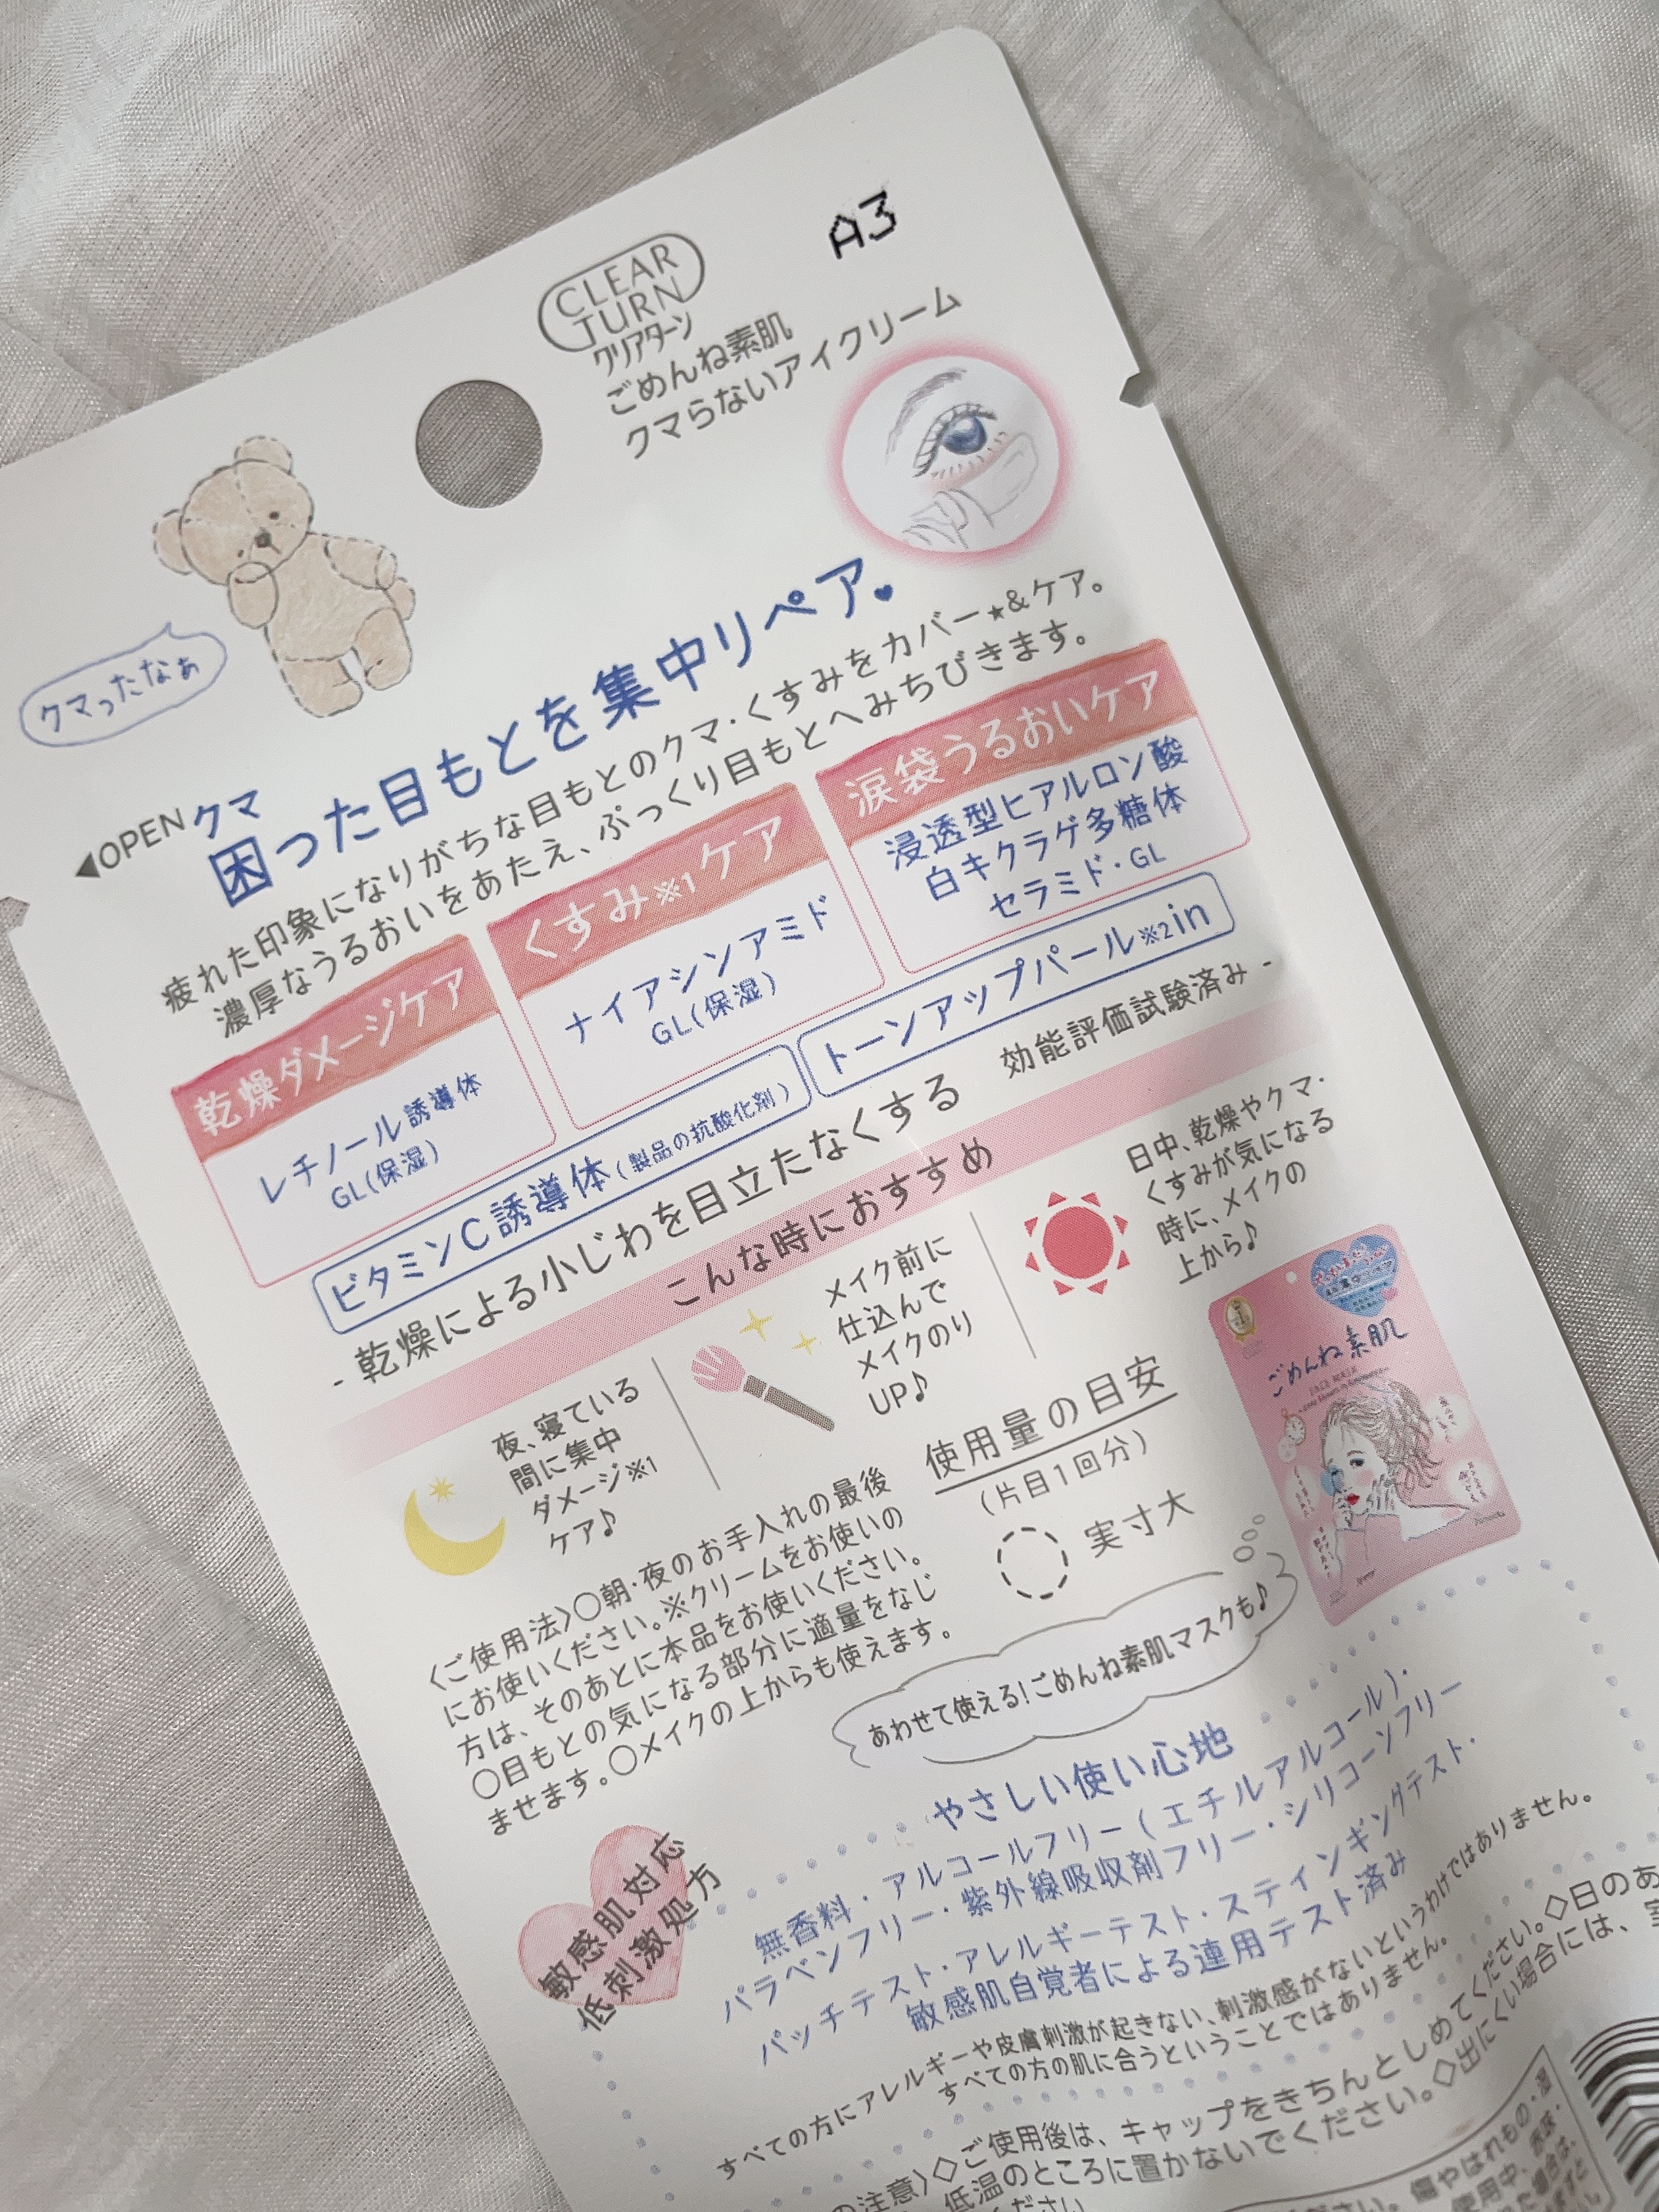 A3
CLEAR
TURN
クリアターン
ごめんね素肌
クマらないアイクリーム
クマったなぁ
◀OPEN
クマ
困った目もとを集中リペア♥
疲れた印象になりがちな目もとのクマ・くすみをカバー★&ケア。
濃厚なうるおいをあたえ、ぷっくり目もとへみちびきます。
乾燥ダメージケア
レチノール誘導体
GL(保湿)
くすみ※1ケア
ナイアシンアミド
GL(保湿)
涙袋うるおいケア
浸透型ヒアルロン酸
白キクラゲ多糖体
セラミド・GL
ビタミンC誘導体(製品の抗酸化剤)
トーンアップパール※2in
- 乾燥による小じわを目立たなくする 効能評価試験済み -
こんな時におすすめ
夜、寝ている
間に集中
ダメージ※1
ケア♪
メイク前に
仕込んで
メイクのり
UP♪
日中、乾燥やクマ・
くすみが気になる
時に、メイクの
上から♪
〈ご使用法〉○朝・夜のお手入れの最後
にお使いください。※クリームをお使いの
方は、そのあとに本品をお使いください。
○目もとの気になる部分に適量をなじ
ませます。○メイクの上からも使えます。
使用量の目安
(片目1回分)
実寸大
ごめんね素肌
FACE MASK
あわせて使える!ごめんね素肌マスクも♪
敏感肌対応
低刺激処方
やさしい使い心地
無香料・アルコールフリー(エチルアルコール)・
パラベンフリー・紫外線吸収剤フリー・シリコーンフリー
パッチテスト・アレルギーテスト・スティンギングテスト・
敏感肌自覚者による連用テスト済み
すべての方にアレルギーや皮膚刺激が起きない、刺激感がないというわけではありません。
すべての方の肌に合うということではありません。
の注意〉◇ご使用後は、キャップをきちんとしめてください。◇日のあ
低温のところに置かないでください。◇出にくい場合には、
ください
さい。傷やはれもの・湿
使用中、赤味・